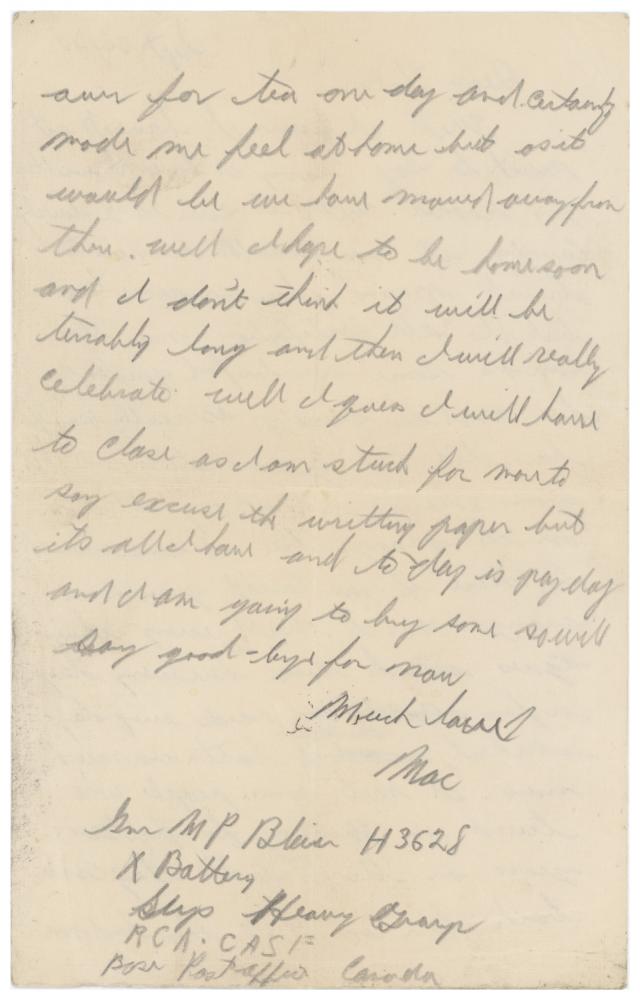 over for tea one day and certainly
made me feel at home but as it
would be we have moved away from
there. well I hope to be home soon
and I don't think it will be
terriably long and then I will really
celebrate. well I guess I will have
to close as I am stuck for more to
say excuse the writting paper but
its all I have and to-day is pay day
and I am going to buy some so will
say good-bye for now
Much love
Mac
Gnr M P H3628
X Battery
Heavy Group
RCA. CASF
Base Post office Canada